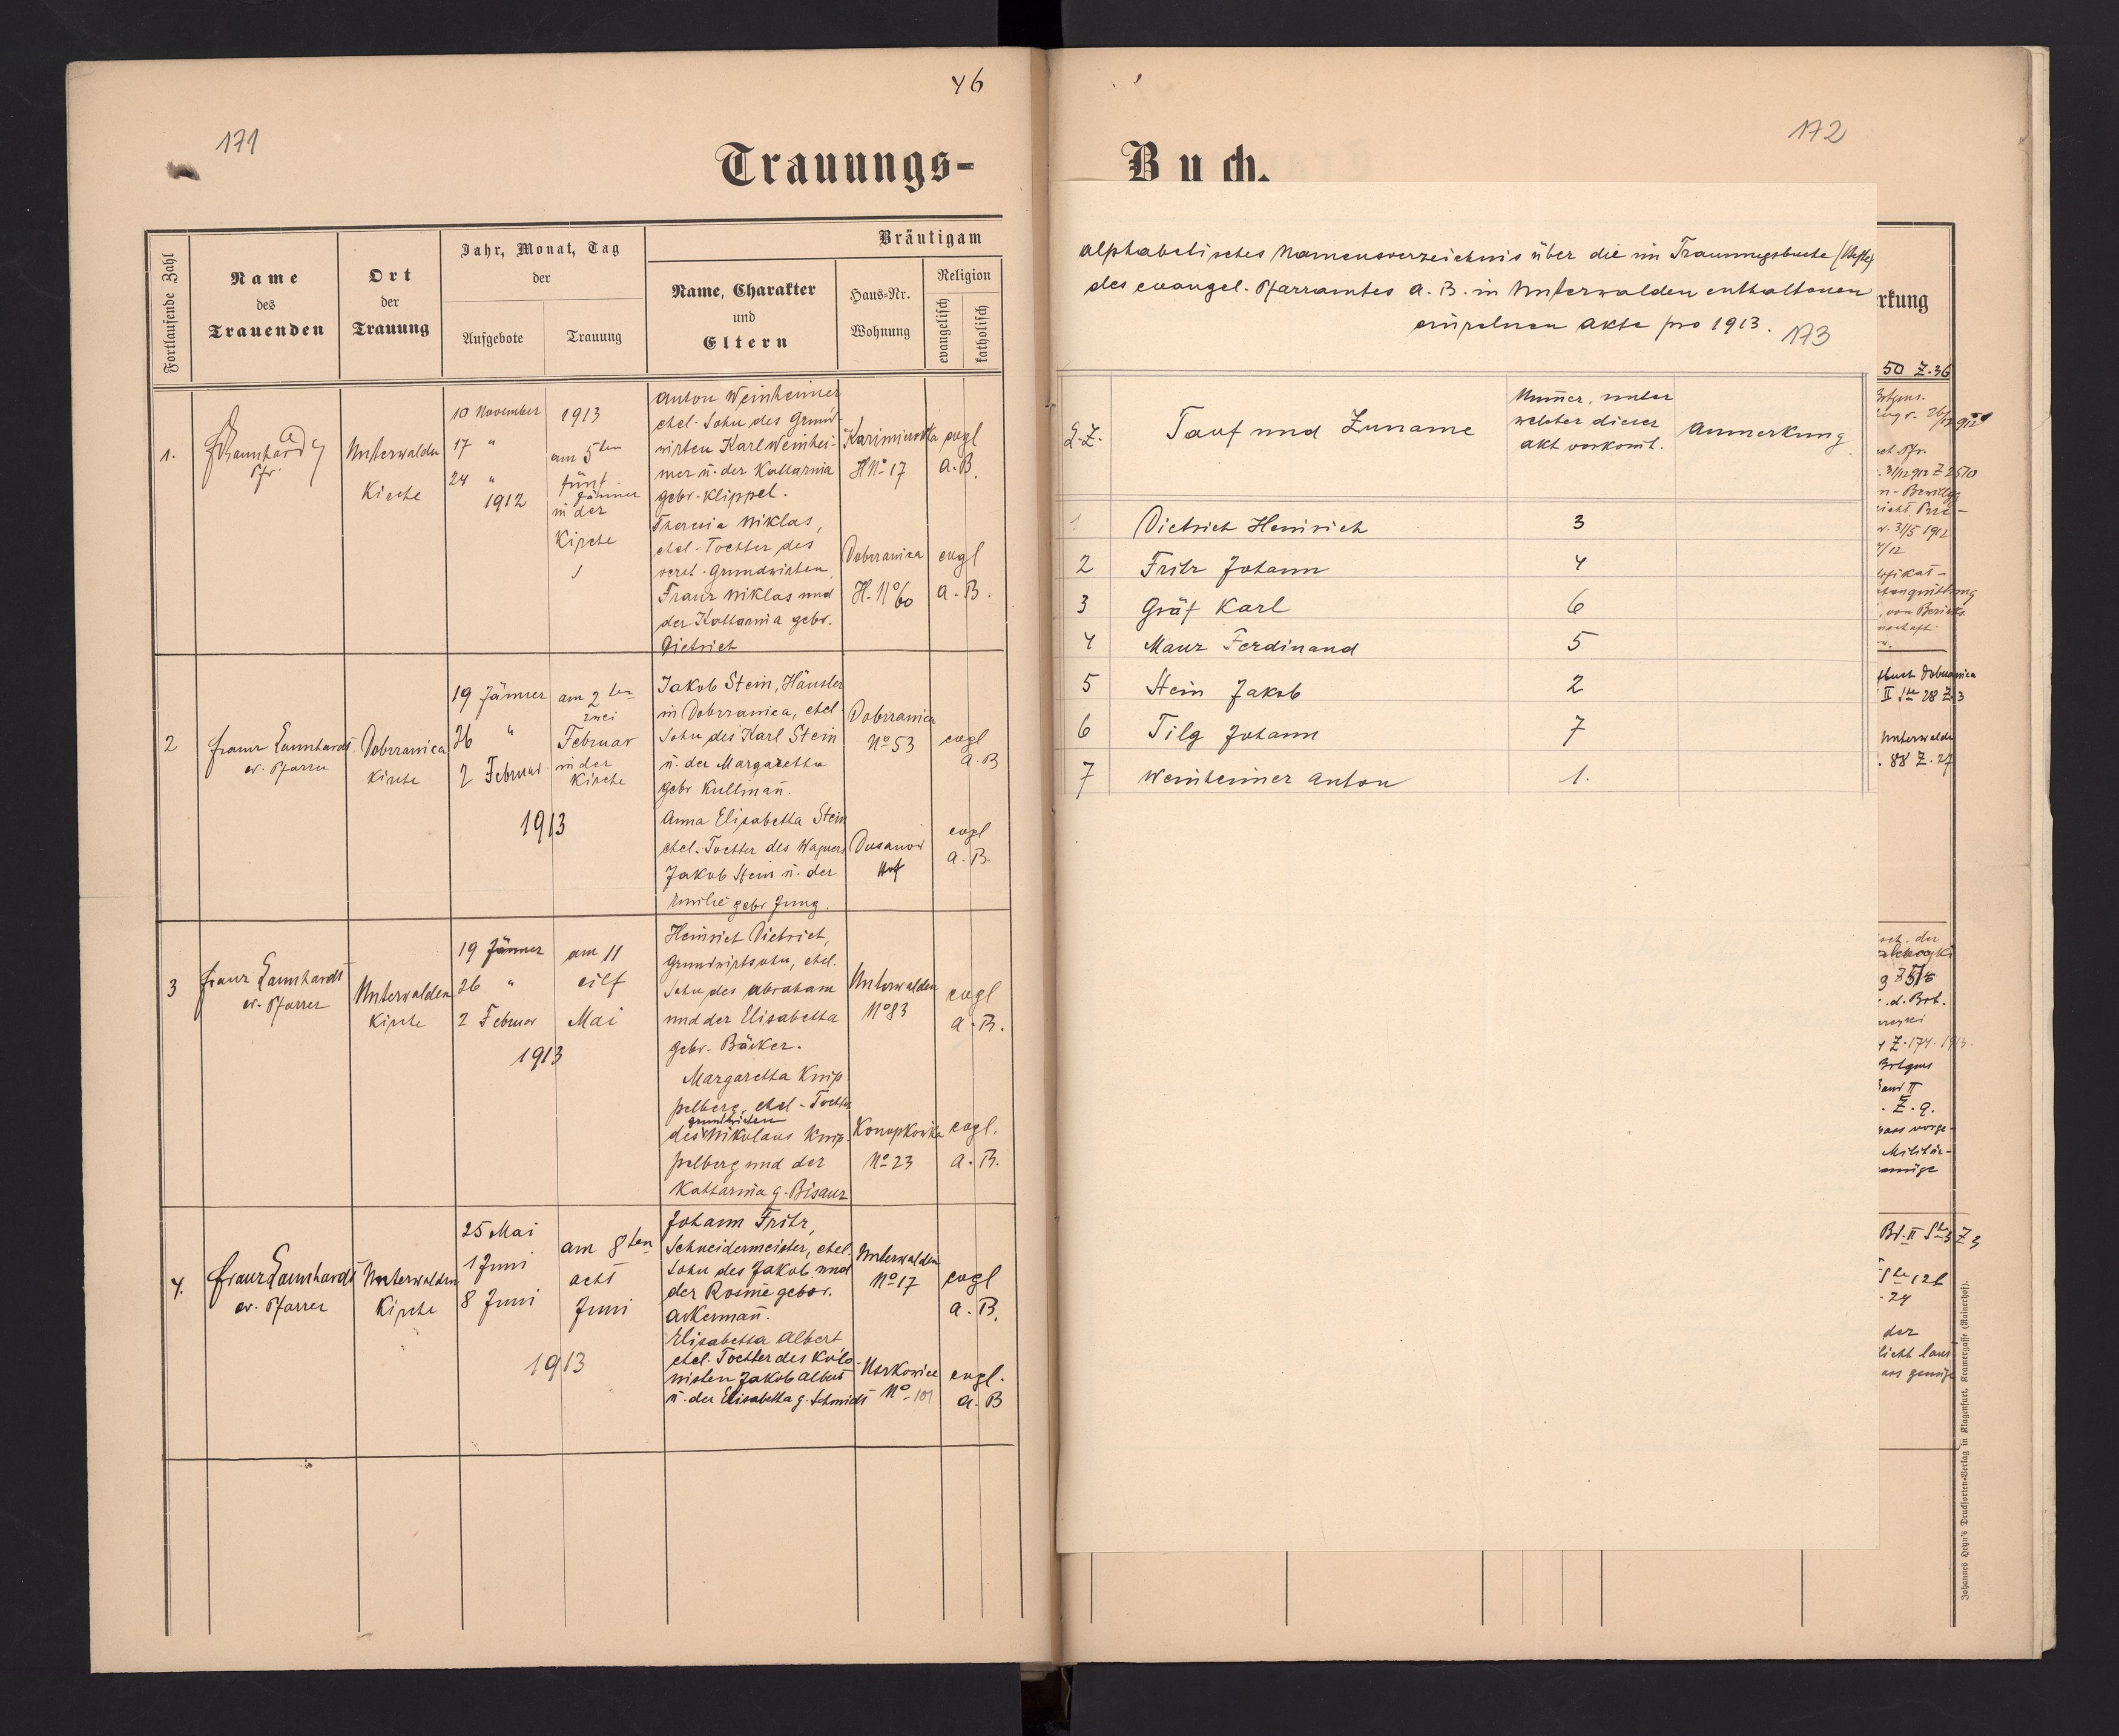 46
171
Trauungs-
Fortlaufende Zahl
Name
des
Trauenden
Ort
der
Trauung
Jahr, Monat, Tag
der
Aufgebote
Trauung
Bräutigam
Name, Charakter
und
Eltern
Haus-Nr.
Wohnung
Religion
evangelisch
katholisch
1.
Pfr.
Unterwalden
Kirche
10 November
17 "
24 "
1912
1913
am 5ten
fünf
Jänner
in der
Kirche
Anton Weinheimer
ehel. Sohn des Grund-
wirten Karl Weinhei-
mer u. der Katharina
gebr. Klippel.
Theresia Niklas,
ehel. Tochter des
verst. Grundwirten
Franz Niklas und
der Katharina gebr.
Dietrich
Kazimierówka
H No 17
Dobrzanica
H. No 60
evgl
A. B.
evgl
A. B.
2
Franz Launhardt
ev. Pfarrer
Dobrzanica
Kirche
19 Jänner
26 "
2 Februar
am 2ten
zwei
Februar
in der
Kirche
1913
Jakob Stein, Häusler
in Dobrzanica, ehel.
Sohn des Karl Stein
u. der Margaretha
gebr Kullmann̄.
Anna Elisabetha Stein
ehel. Tochter des Wagners
Jakob Stein u. der
Emilie gebr Jung.
Dobrzanica
No 53
Dusanów
Hof
evgl
A. B
evgl
A. B.
3
Franz Launhardt
ev. Pfarrer
Unterwalden
Kirche
19 Jänner
26 "
2 Februar
am 11
eilf
Mai
1913
Heinrich Dietrich,
Grundwirtsohn, ehel.
Sohn des Abraham
und der Elisabetha
gebr. Bäcker.
Margaretha Knip
pelberg, ehel. Tochter
Grundwirten
des Nikolaus Knip-
pelberg und der
Katharina g. Bisanz
Unterwalden
No 83
Konopkowka
No 23
evgl
A. B.
evgl.
A. B.
4.
Franz Launhardt
ev. Pfarrer
Unterwalden
Kirche
25 Mai
1 Juni
8 Juni
am 8ten
acht
Juni
1913
Johann Fritz,
Schneidermeister, ehel.
Sohn des Jakob und
der Rosine gebor.
Ackerman̄.
Elisabetha Albert
ehel. Tochter des Kolo-
nisten Jakob Albert
u. der Elisabetha g. Schmidt
Unterwalden
No 17
Uszkowice
No 101
evgl
A. B.
evgl.
A. B
172
Buch.
Alphabetisches Namensverzeichnis über die im Trauungsbuche
des evangel. Pfarramtes A. B. in Unterwalden enthaltenen
einzelnen Akte pro 1913.
173
L. Z.
Tauf und Zuname
Num̄er, unter
welcher dieser
Akt vorkomt.
Anmerkung
1 Dietrich Heinrich 3
2 Fritz Johann 4
3 Gräf Karl 6
4 Manz Ferdinand 5
5 Stein Jakob 2
6 Tilg Johann 7
7 Weinheimer Anton 1.
rkung
50 Z. 36
31/5 1912
Unterwalden
. 88 Z. 27
. d. Brt.
Z. 174. 1913
. Z. 9.
Militär-
der
Johannes Heyn's Drucksorten-Verlag in Klagenfurt, Kramergasse (Rainerhof).